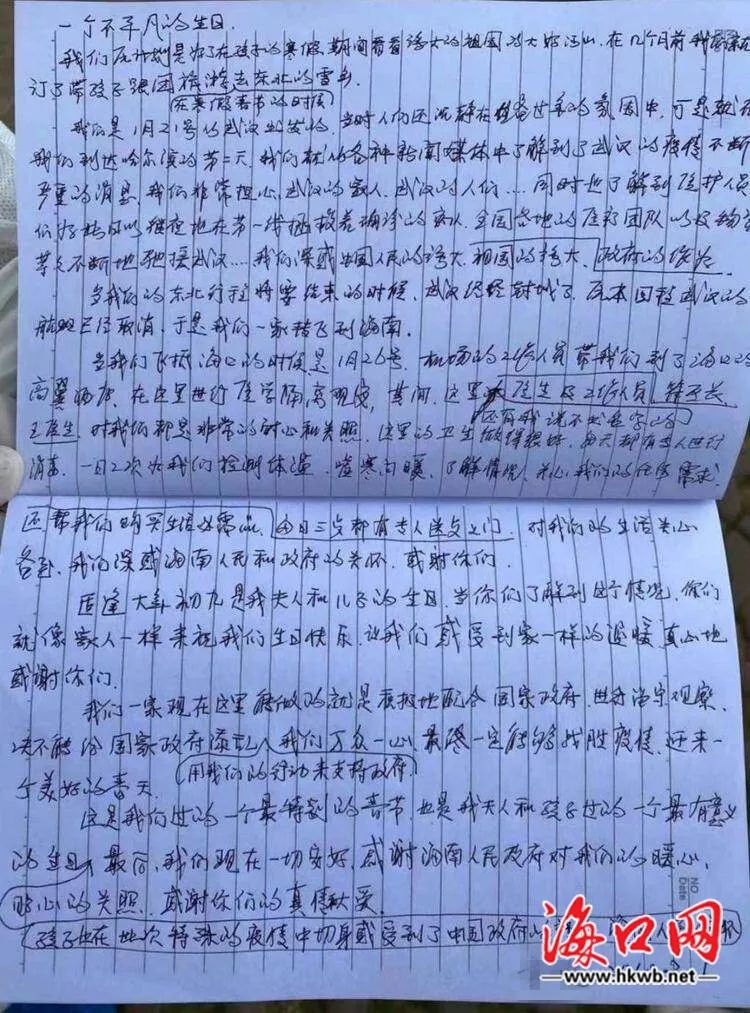 一个不平凡的生日
我们原计划是好了在孩子的寒假期间看看强大的祖国的大好河山,在几个月前我们就
订了带孩子跟团旅游去东北的雪乡.
在寒假春节的时候
我们是1月21号从武汉出发的,当时人们还沉静在准备过年的氛围中,可是就在
我们到达哈尔滨的第二天,我们就从各种新闻媒体中了解到了武汉的疫情不断
严重的消息,我们非常担心武汉的家人,武汉的人们....同时也了解到医护人员
们夜以继夜地在第一线拯救着确诊的病人,全国各地的医疗团队以及物资
等等不断地驰援武汉....我们深感中国人民的强大,祖国的强大,政府的伟大.
当我们的东北行程将要结束的时候,武汉已经封城了,原本回程武汉的
航班已经取消,于是我们一家转飞到海南.
当我们飞抵海口的时候是1月26号,机场的工作人员带我们到了海口的
酒店,在这里进行医学隔离观察,期间,这里医生及工作人员,符医长
还有我说不出名字的
王医生,对我们都是非常的耐心和关照,这里的卫生做得很好,每天都有专人进行
消毒,一日2次为我们检测体温,嘘寒问暖,了解情况,关心我们的任何需求.
还帮我们购买生活必需品,每日三次都有专人送到上门,对我们的生活关心
备至,我们深感海南人民和政府的关怀,感谢你们.
适逢大年初九是我夫人和儿子的生日,当你们了解到这个情况,你们
就像家人一样来祝我们生日快乐,让我们感受到家一样的温暖,真心地
感谢你们.
我们一家现在这里能做的就是积极地配合国家政府,进行留守观察,
决不能给国家政府添乱,我们万众一心,最终一定能够战胜疫情,迎来一
个美好的春天.
用我们的行动来支持政府
这是我们过的一个最特别的春节,也是我夫人和孩子过的一个最有意义
的生日,最后,我们现在一切安好,感谢海南人民政府对我们的暖心,
贴心的关照,感谢你们的真情献爱.
孩子也在此次特殊的疫情中切身感受到了中国政府
NO
Date
海口网
www.hkwb.net